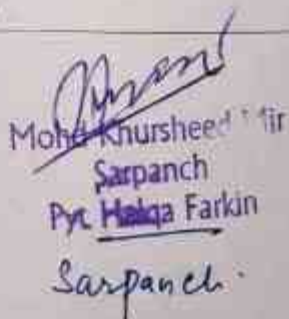 Mohd Khursheed Mir
Sarpanch
Pyt Halqa Farkin
Sarpanch.